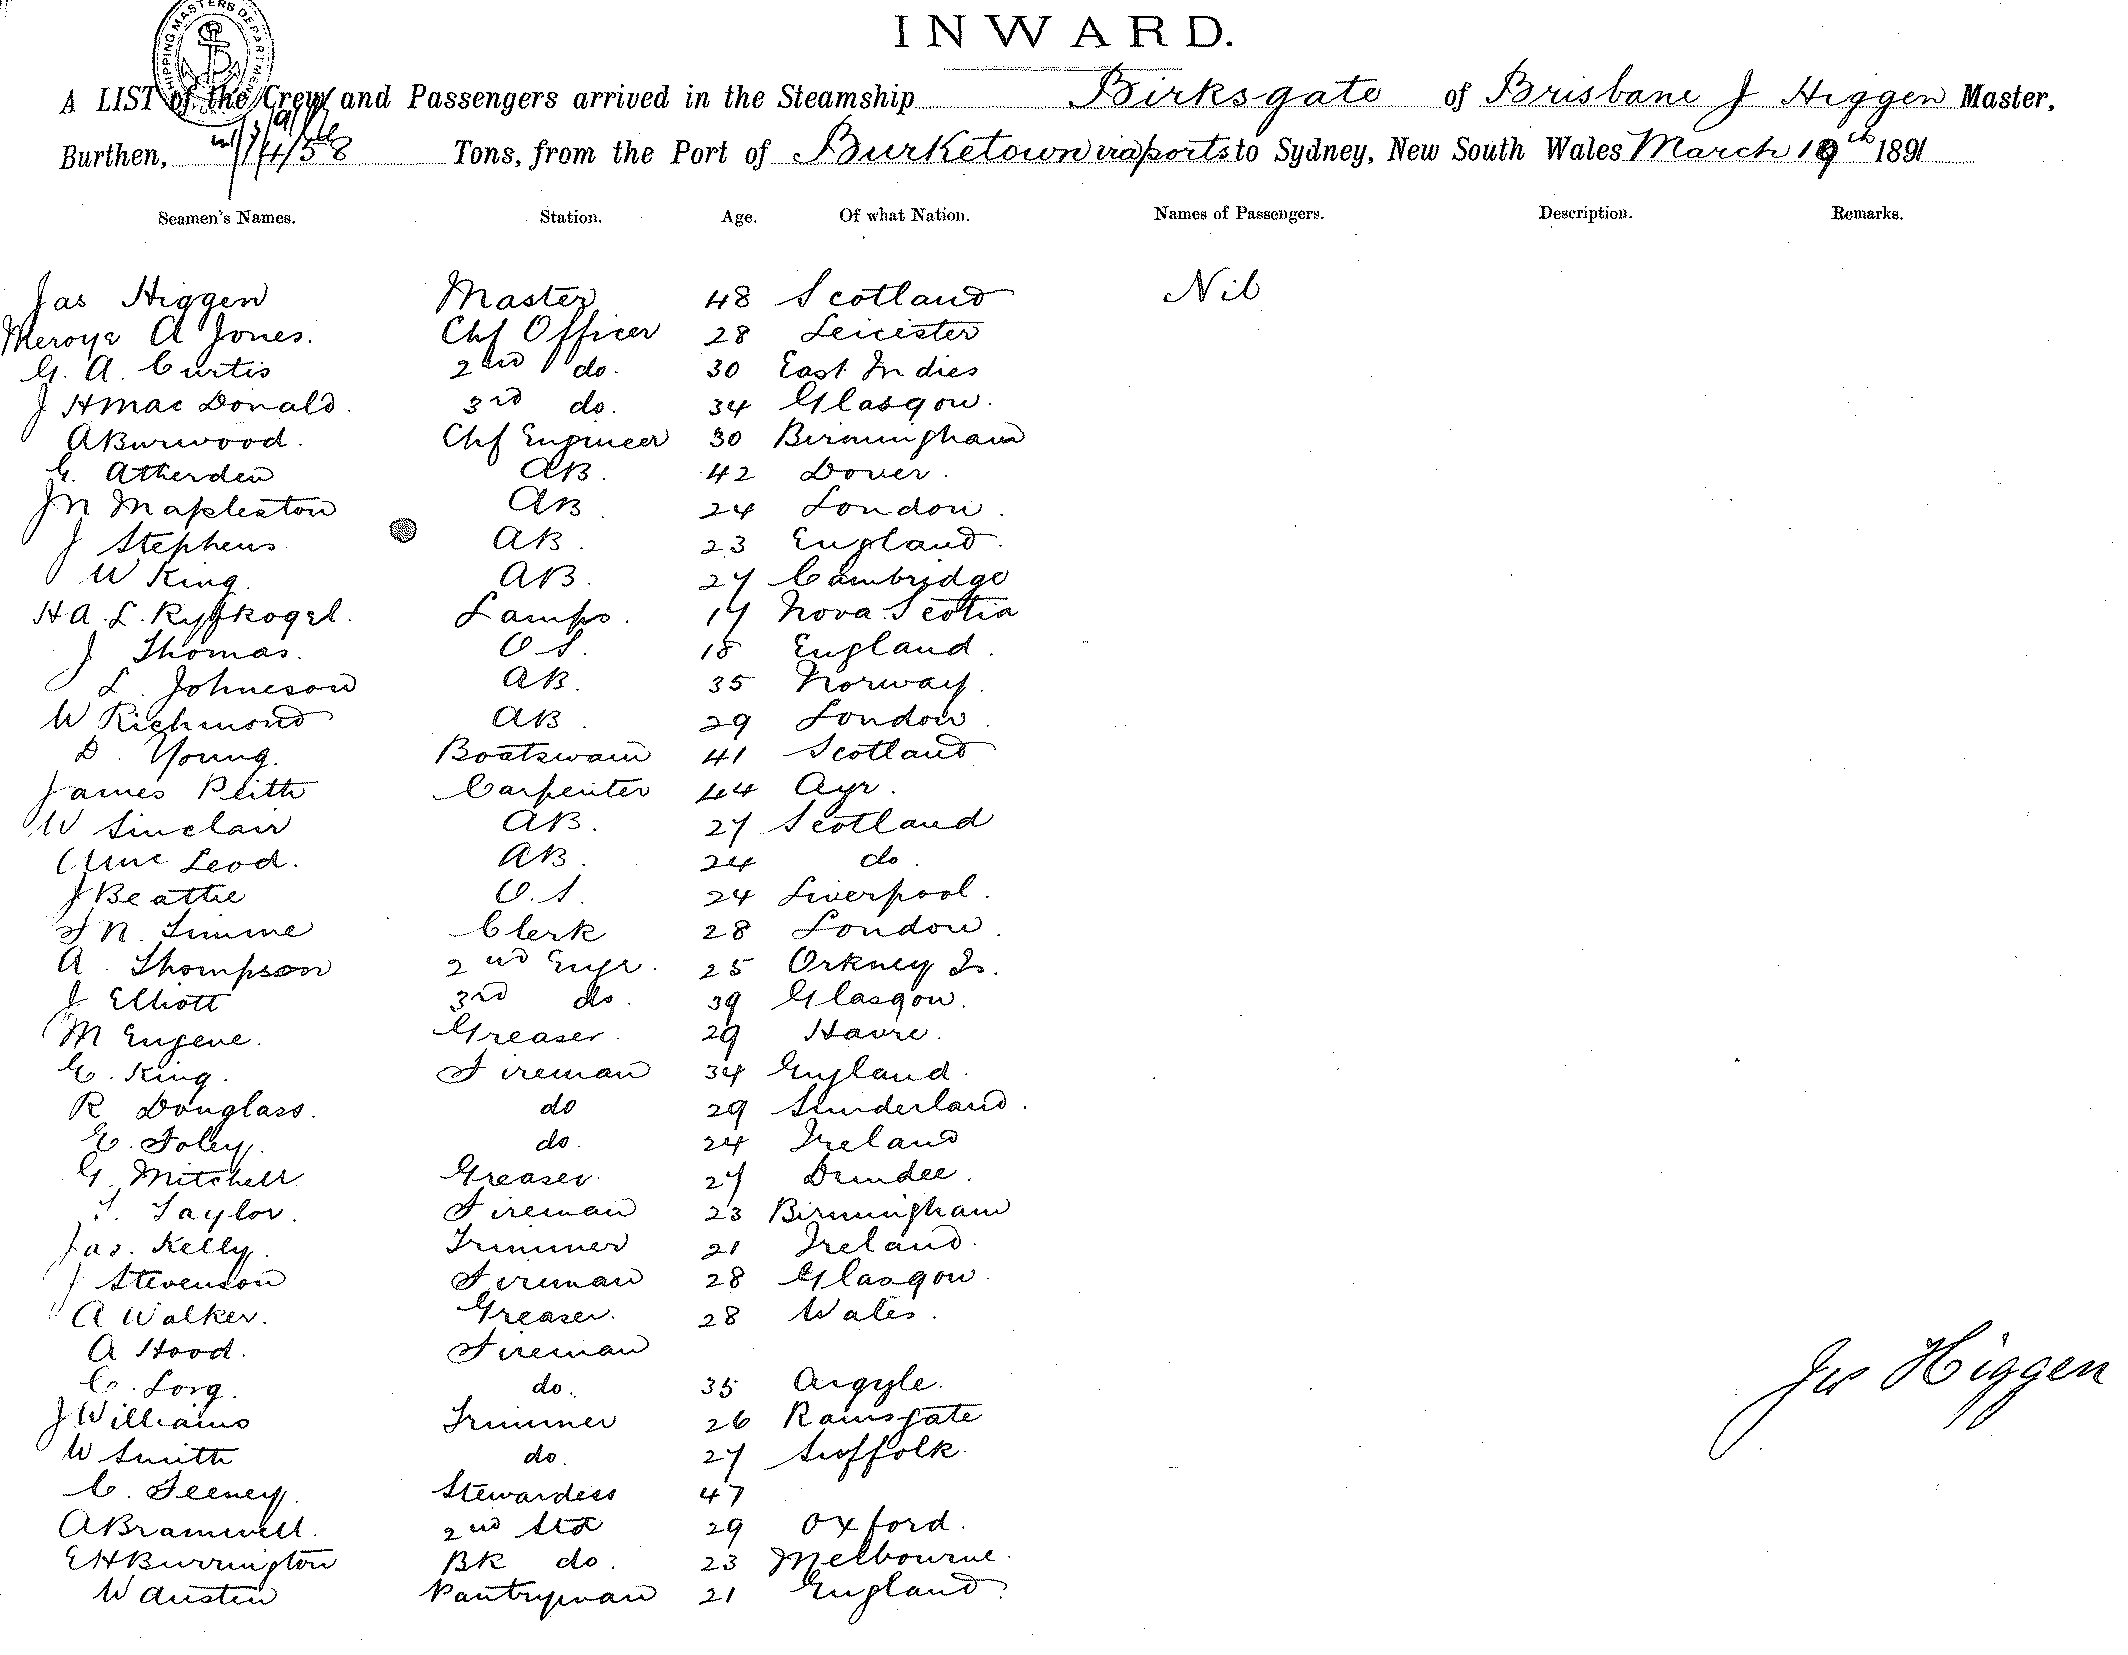 INWARD.
SHIPPING MASTERS DEPARTMENT
A LIST of the Crew and Passengers arrived in the Steamship Birksgate of Brisbane J Higgen Master,
Burthen, Tons, from the Port of Burketown via ports to Sydney, New South Wales March 19th 1891
Seamen's Names. Station. Age. Of what Nation. Names of Passengers. Description. Remarks.
Jas Higgen Master 48 Scotland Nil
A Jones. Chf Officer 28 Leicester
G. A. Curtis 2nd do. 30 East Indies
J H Mac Donald. 3rd do. 34 Glasgow.
A Burwood. Chf Engineer 30 Birmingham
G. Atherden AB. 42 Dover.
J N Mapleston AB 24 London.
J Stephens AB. 23 England.
W King. AB. 27 Cambridge
H A. L. Ryffkogel. Lamps. 17 Nova Scotia
J Thomas. O S. 18 England.
L. Johneson AB. 35 Norway.
W Richmond AB. 29 London.
D. Young. Boatswain 41 Scotland
James Beith Carpenter 44 Ayr.
W Sinclair AB. 27 Scotland
Mc Leod. AB. 24 do.
J Beattie O. S. 24 Liverpool.
N. Simme Clerk 28 London.
A. Thompson 2nd Engr. 25 Orkney Is.
J Elliott 3rd do. 39 Glasgow.
M Eugene. Greaser. 29 Havre.
E. King. Fireman 34 England.
R Douglass. do 29 Sunderland.
E. Foley. do. 24 Ireland
G. Mitchell Greaser. 27 Dundee.
T. Taylor. Fireman 23 Birmingham
Jas. Kelly. Trimmer 21 Ireland.
J Stevenson Fireman 28 Glasgow.
A Walker. Greaser. 28 Wales.
A Hood. Fireman
C. Lorg. do. 35 Argyle.
Jas Higgen
J Williams Trimmer 26 Ramsgate
W Smith do. 27 Suffolk.
C. Feeney. Stewardess 47
A Bramwell. 2nd Std 29 Oxford.
E H Burrington BK do. 23 Melbourne.
W Austen Pantryman 21 England.